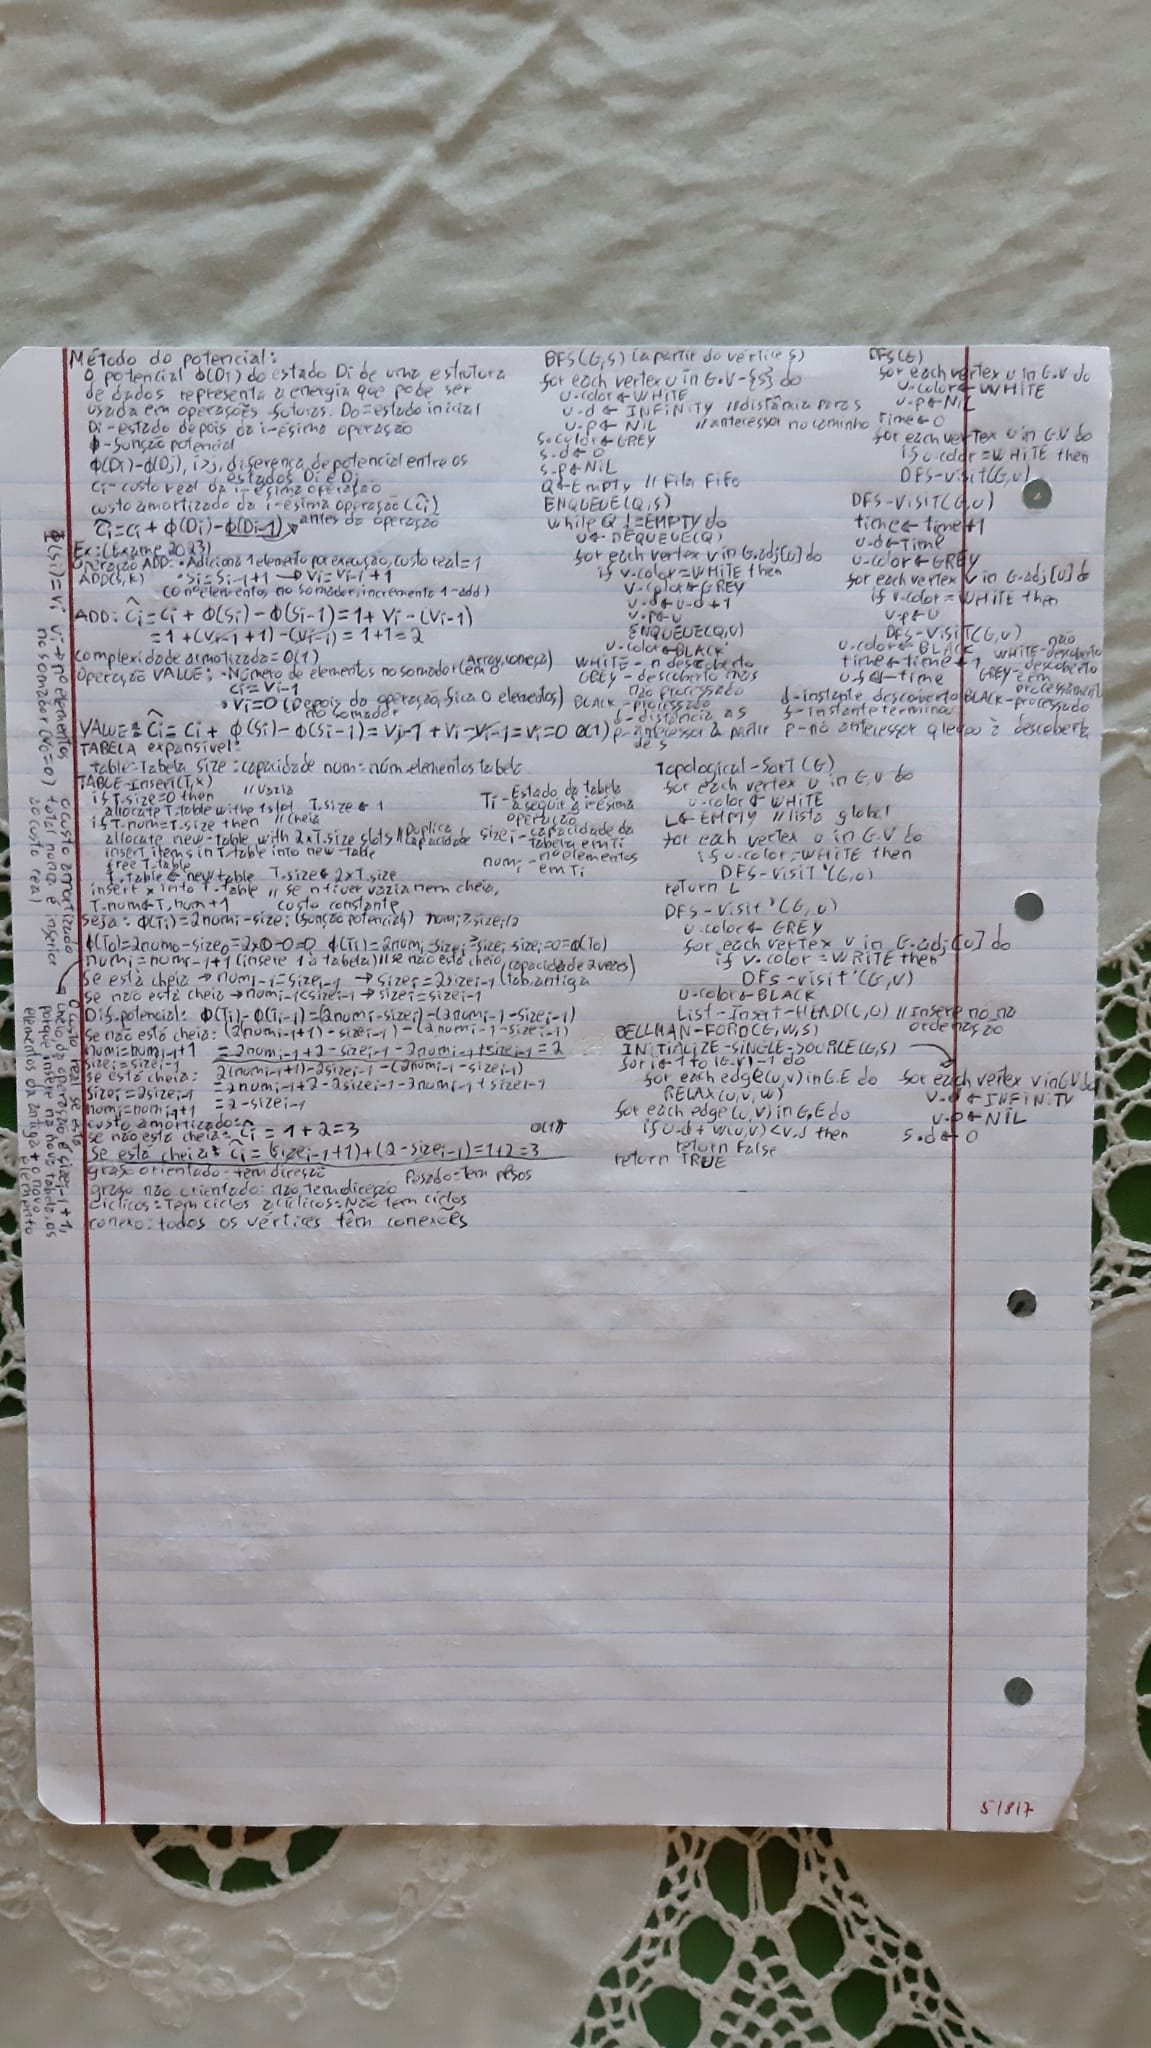 Método do potencial:
O potencial ϕ(Di) do estado Di de uma estrutura
de dados representa a energia que pode ser
usada em operações futuras. D0=estado inicial
Di-estado depois da i-ésima operação
ϕ-função potencial
ϕ(Di)-ϕ(Dj), i>j, diferença de potencial entre os
estados Di e Dj
ci-custo real da i-ésima operação
custo amortizado da i-ésima operação (ĉi)
ĉi=ci+ϕ(Di)-ϕ(Di-1) antes da operação
Ex:(Exame 2023)
Operação ADD: •Adiciona 1 elemento por execução, custo real=1
ADD(S,K) •Si=Si-1+1 → Vi=Vi-1+1
(o nº elementos no somador, incremento 1-add)
ADD: ĉi=ci+ϕ(Si)-ϕ(Si-1)=1+Vi-(Vi-1)
=1+(Vi-1+1)-(Vi-1)=1+1=2
Complexidade amortizada=O(1)
Operação VALUE: •Número de elementos no somador (Array, começa)
ci=Vi-1
•Vi=0 (Depois da operação, fica 0 elementos)
no somador
VALUE: ĉi=ci+ϕ(Si)-ϕ(Si-1)=Vi-1+Vi-Vi-1=Vi=0 O(1)
TABELA expansível:
table=Tabela size=capacidade num=núm. elementos tabela
TABLE-Insert(T,x)
if T.size=0 then //vazia
allocate T.table with 1 slot T.size ← 1
if T.num=T.size then //cheia
allocate new-table with 2×T.size slots //Duplica capacidade
insert items in T.table into new-table
free T.table
T.table ← new table T.size ← 2×T.size
insert x into T.table //se n tiver vazia nem cheia,
T.num←T.num+1 custo constante
Ti-Estado da tabela
a seguir à i-ésima
operação
sizei-capacidade da
tabela em Ti
numi-nº elementos
em Ti
Seja: ϕ(Ti)=2numi-sizei (função potencial) numi≥sizei/2
ϕ(T0)=2num0-size0=2×0-0=0 ϕ(Ti)=2numi-sizei≥sizei-sizei=0=ϕ(T0)
numi=numi-1+1 (insere 1 à tabela) //se não está cheio
se está cheia → numi-1=sizei-1 → sizei=2sizei-1 (capacidade 2 vezes tab. antiga)
se não está cheia → numi-1<sizei-1 → sizei=sizei-1
Dif. potencial: ϕ(Ti)-ϕ(Ti-1)=(2numi-sizei)-(2numi-1-sizei-1)
Se não está cheia: (2(numi-1+1)-sizei-1)-(2numi-1-sizei-1)
numi=numi-1+1 =2numi-1+2-sizei-1-2numi-1+sizei-1=2
sizei=sizei-1
se está cheia: (2(numi-1+1)-2sizei-1)-(2numi-1-sizei-1)
sizei=2sizei-1 =2numi-1+2-2sizei-1-2numi-1+sizei-1
numi=numi-1+1 =2-sizei-1
custo amortizado:
se não está cheia: ĉi=1+2=3 O(1)
se está cheia: ĉi=(sizei-1+1)+(2-sizei-1)=1+2=3
grafo orientado=tem direção Pesado=tem pesos
grafo não orientado: não tem direção
cíclicos=Tem ciclos acíclicos=Não tem ciclos
conexo: todos os vértices têm conexões
ϕ(Si)=Vi Vi→nº elementos
no somador (V0=0)
o custo amortizado
total nunca é inferior
ao custo real
O custo real se está
cheio da operação é sizei-1+1,
porque insere na nova tabela, os
elementos da antiga + o novo
elemento
BFS(G,s) (a partir do vértice s)
for each vertex u in G.V-{s} do
u.color←WHITE
u.d ← INFINITY //distância para s
u.p←NIL //antecessor no caminho
s.color←GREY
s.d←0
s.p←NIL
Q←EMPTY //Fila FiFo
ENQUEUE(Q,s)
while Q !=EMPTY do
u← DEQUEUE(Q)
for each vertex v in G.adj[u] do
if v.color=WHITE then
v.color←GREY
v.d←u.d+1
v.p←u
ENQUEUE(Q,v)
u.color←BLACK
WHITE-n descoberto
GREY-descoberto mas
não processado
BLACK-processado
d-distância a s
p-antecessor a partir
de s
DFS(G)
for each vertex u in G.V do
u.color←WHITE
u.p←NIL
time←0
for each vertex u in G.V do
if u.color=WHITE then
DFS-VISIT(G,u)
DFS-VISIT(G,u)
time←time+1
u.d←time
u.color←GREY
for each vertex v in G.adj[u] do
if v.color=WHITE then
v.p←u
DFS-VISIT(G,v)
u.color←BLACK
time←time+1
u.f←time
WHITE-não descoberto
GREY-descoberto
e em
processamento
d-instante descoberto BLACK-processado
f-instante termino
p-nó antecessor q levou à descoberta
Topological-Sort(G)
for each vertex u in G.V do
u.color←WHITE
L←EMPTY //lista global
for each vertex u in G.V do
if u.color=WHITE then
DFS-VISIT'(G,u)
return L
DFS-VISIT'(G,u)
u.color←GREY
for each vertex v in G.adj[u] do
if v.color=WHITE then
DFS-VISIT'(G,v)
u.color←BLACK
List-Insert-HEAD(L,u) //Insere nó na
ordenação
BELLMAN-FORD(G,w,s)
INITIALIZE-SINGLE-SOURCE(G,s)
for i←1 to |G.V|-1 do
for each edge(u,v) in G.E do
RELAX(u,v,w)
for each edge(u,v) in G.E do
if u.d+w(u,v)<v.d then
return False
return TRUE
for each vertex v in G.V do
v.d←INFINITY
v.p←NIL
s.d←0
5/8/7